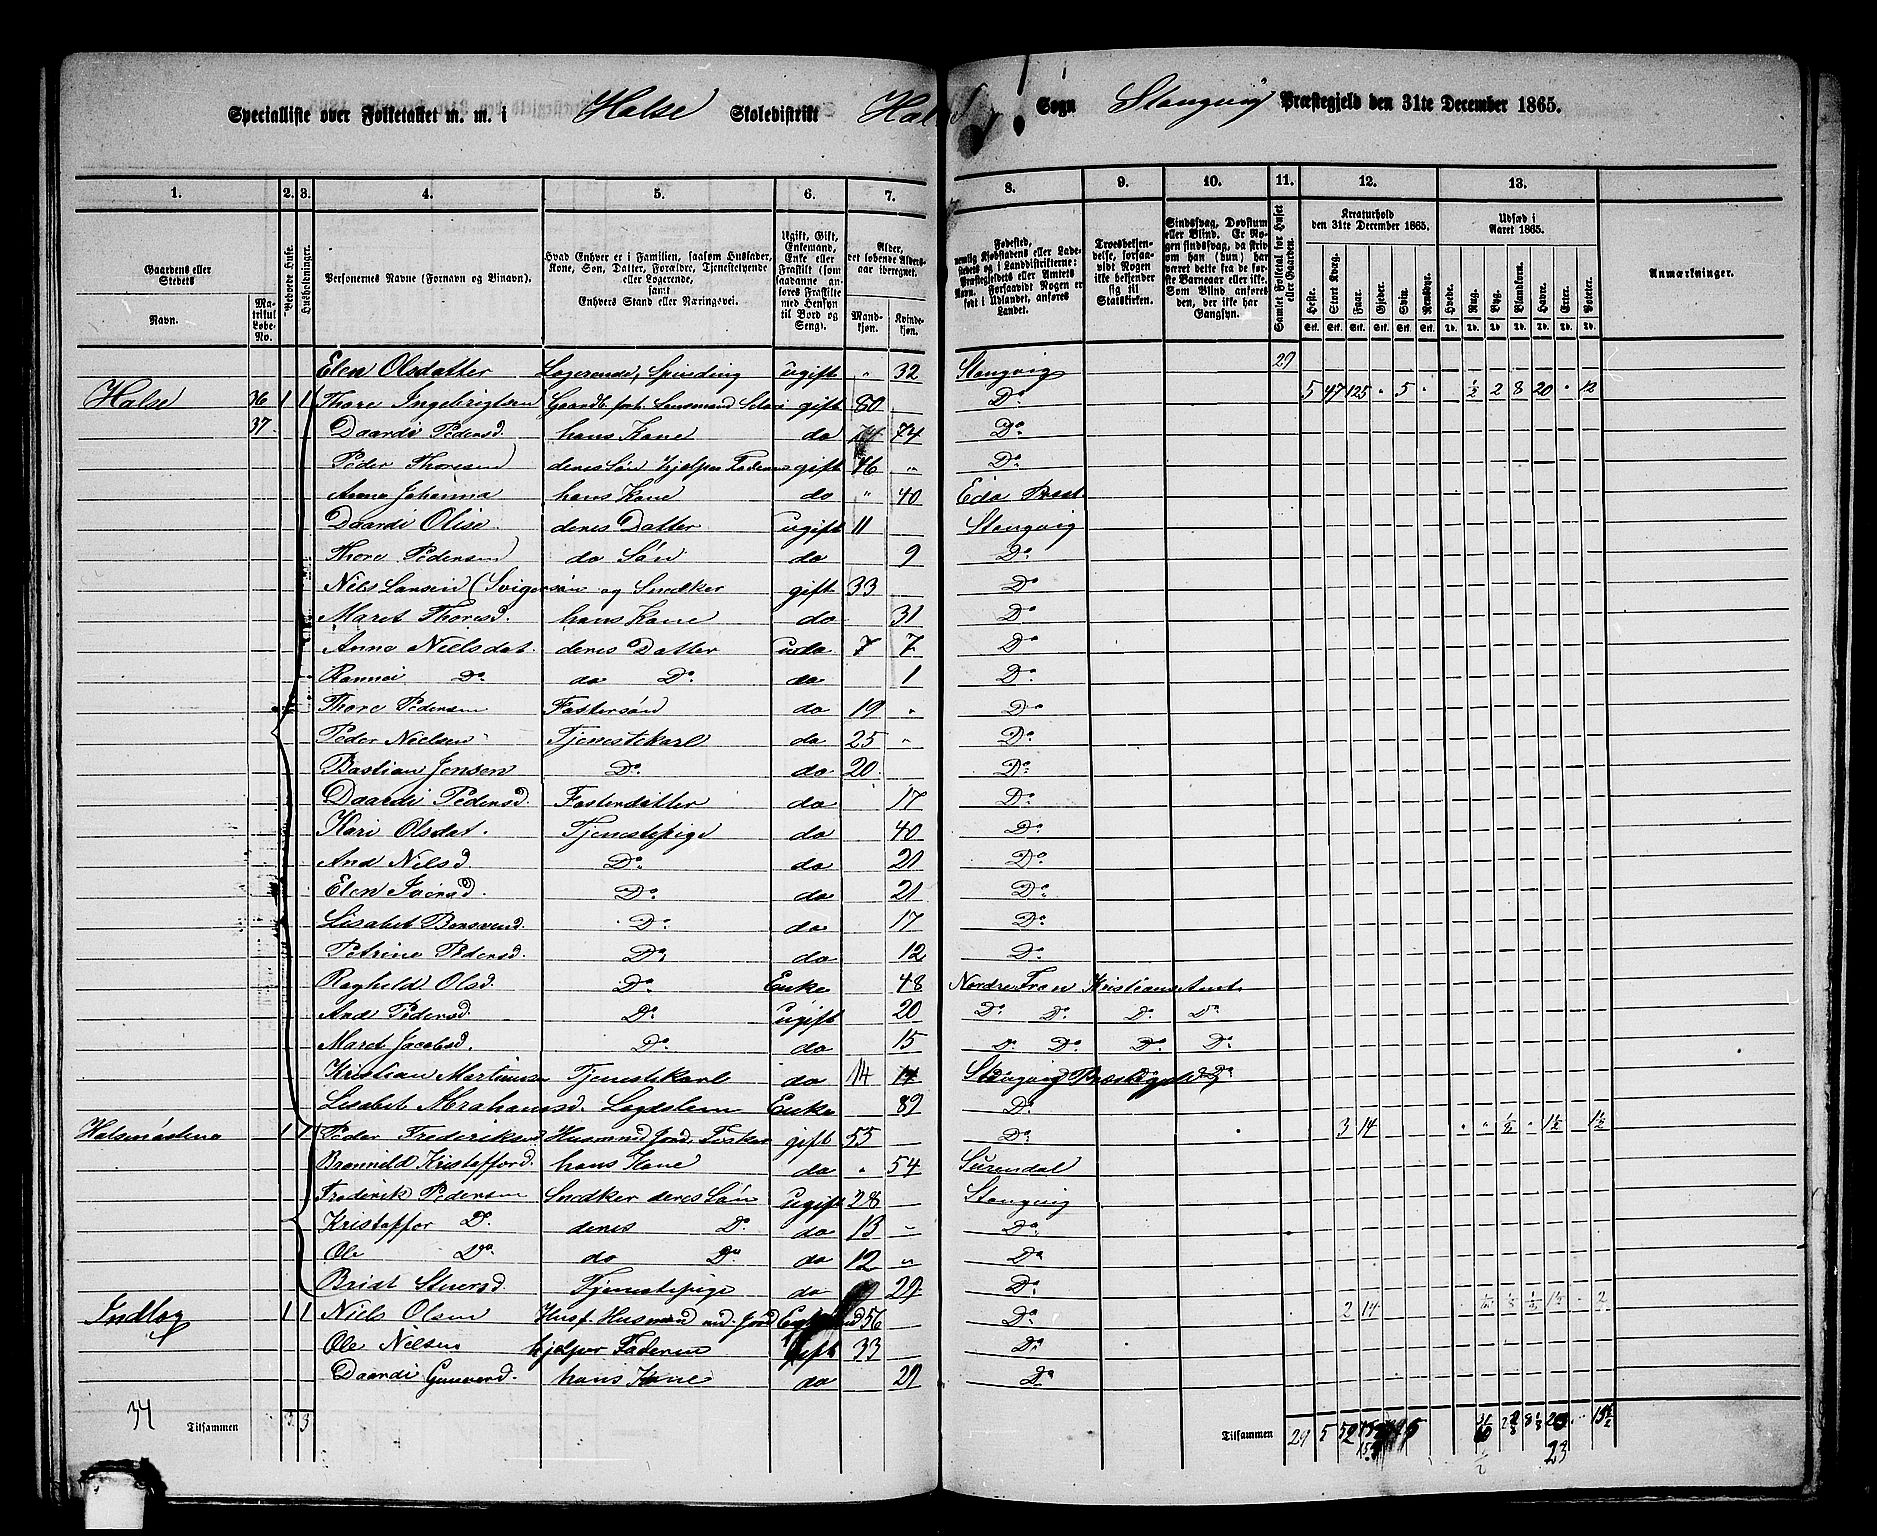 Specialliste over Folketallet m. m. i Halse Skoledistrikt Halse Sogn Stangvig Præstegjeld den 31te December 1865.
1. 2. 3. 4. 5. 6. 7. 8. 9. 10. 11. 12. 13.
Gaardens eller Stedets Navn. Matrikul Løbe-No. Beboede Huse. Husholdninger. Personernes Navne (Fornavn og Binavn). Hvad Enhver er i Familien, saasom Husfader, Kone, Søn, Datter, Forældre, Tjenestetyende eller Logerende, samt Enhvers Stand eller Næringsvei. Ugift, Gift, Enkemand, Enke eller Fraskilt (som saadanne anføres Fraskilte med Hensyn til Bord og Seng). Alder, det løbende Alders-aar iberegnet. Mandkjøn. Kvindekjøn.
Fødested, Troesbekjendelse, forsaavidt Nogen ikke bekjender sig til Statskirken. Sindssvag, Døvstum eller Blind. Samlet Folketal for Huset eller Gaarden. Kreaturhold den 31te December 1865. Udsæd i Aaret 1865. Anmærkninger.
Heste. Stort Kvæg. Faar. Gjeder. Svin. Rensdyr. Hvede. Rug. Byg. Blandkorn. Havre. Erter. Poteter.
Elen Olsdatter Logerende, Spinding ugift " 32 Stangvig 29
Halse 36 1 1 Thore Ingebrigtsen Gaardb. gift 80 Do 5 47 125 " 5 " ½ 2 8 20 " 12
37 Daardi Pedersd. hans Kone do 74 Do
Peder Thoresen deres Søn hjelper Faderen gift 46 " Do
Anna Johanna hans Kone do " 40
Daardi Olise deres Datter ugift 11 Stangvig
Thore Pedersen do Søn do 9 Do
Nils Larsen (Svigersøn og Snedker gift 33 Do
Maret Thoresd. hans Kone do 31 Do
Anne Nielsdat. deres Datter do 7 7 Do
Do do Do do 1 Do
Thore Pedersen Fostersøn do 19 " Do
Peder Nielsen Tjenestekarl do 25 " Do
Bastian Jensen Do do 20 Do
Daardi Pedersd. Fosterdatter do 17 Do
Kari Olsdat. Tjenestepige do 40 Do
And Nilsd. Do do 21 Do
Elen Do do 21 Do
Lisabet Do do 17 Do
Petrine Pedersd. Do do 12 Do
Ragheld Olsd. Do Enke 48 Nordre Fron Kristians Amt
And Pedersd. Do ugift 20 Do Do Do Do
Maret Jacobsd. Do do 15 Do Do Do Do
Kristian Martinsen Tjenestekarl do 14 Stangvig Præstegjeld
Lisabet Abrahamsd. Lægdslem Enke 89 Do
1 1 Peder Frederiksen Husmand Jord, Fisker gift 55 Do 3 14
Kristafford. hans Kone do " 54 Surendal
Frederik Pedersen Snedker deres Søn ugift 28 Stangvig
Kristaffor Do deres Do do 13 Do
Ole Do do Do do 12 " Do
Brist Tjenestepige do 29 Do
Indlog 1 1 Niels Olsen Husf. Husmand md. Jord 56 Do 2 14
Ole Nilsen hjelper Faderen gift 33 Do
Daardi hans Kone do 29 Do
34 Tilsammen 3 3 Tilsammen 29 5 52
23